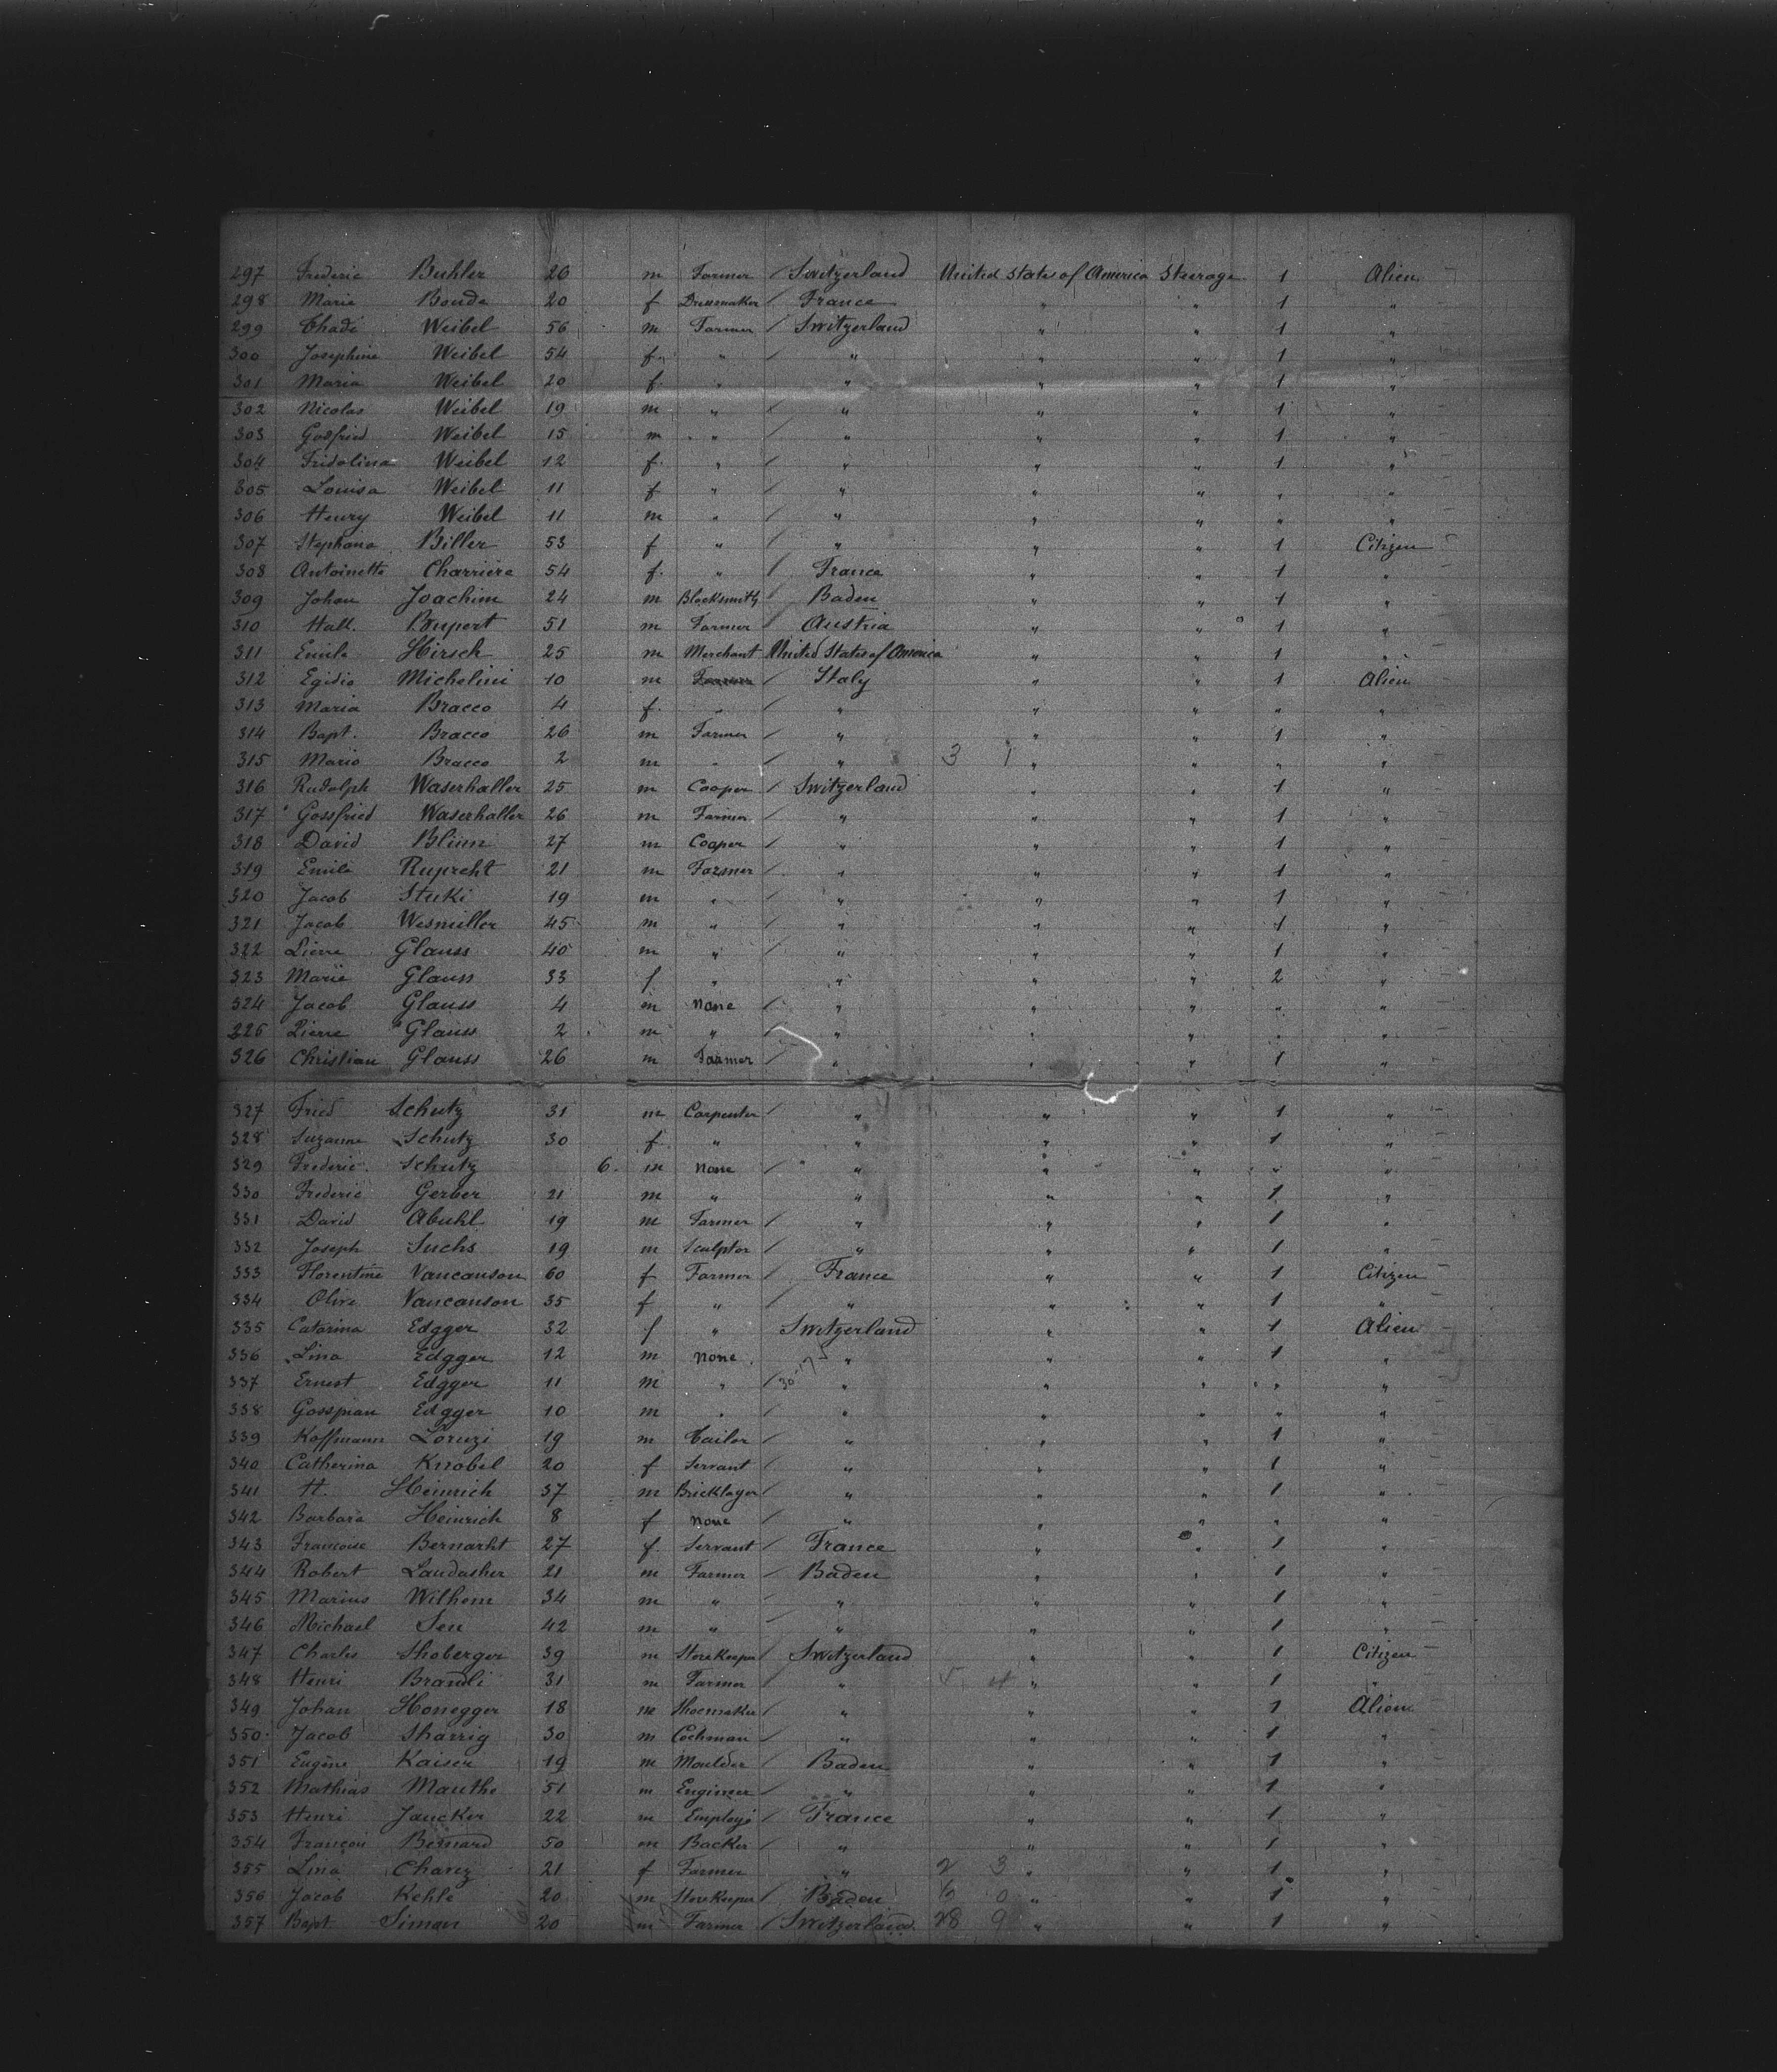 297 Frederic Buhler 26 m Farmer / Switzerland United States of America Steerage 1 Alien
298 Marie Boude 20 f Dressmaker / France " " 1 "
299 Chadé Weibel 56 m Farmer / Switzerland " " 1 "
300 Josephine Weibel 54 f " / " " " 1 "
301 Maria Weibel 20 f " " " " 1 "
302 Nicolas Weibel 19 m " / " " " 1 "
303 Godfried Weibel 15 m " / " " " 1 "
304 Fridolina Weibel 12 f " / " " " 1 "
305 Louisa Weibel 11 f " / " " " " "
306 Henry Weibel 11 m " / " " " " "
307 Stephana Biller 53 f " / " " " 1 Citizen
308 Antoinette Charriere 54 f " / France " " 1 "
309 Johan Joachim 24 m Blacksmith / Baden " " 1 "
310 Hall. Rupert 51 m Farmer / Austria " " 1 "
311 Emile Hirsch 25 m Merchant United States of America " " 1 "
312 Egidio Michelini 10 m Farmer / Italy " " 1 Alien
313 Maria Bracco 4 f " / " " " " "
314 Bapt. Bracco 26 m Farmer / " " " 1 "
315 Mario Bracco 2 m " / " 3 1 " " " "
316 Rudolph Waserhaller 25 m Cooper / Switzerland " " 1 "
317 Gossfried Waserhaller 26 m Farmer / " " " 1 "
318 David Blum 27 m Cooper / " " " 1 "
319 Emile Ruprecht 21 m Farmer / " " " 1 "
320 Jacob Stuki 19 m " / " " " 1 "
321 Jacob Wesmuller 45 m " / " " " 1 "
322 Pierre Glauss 40 m " / " " " 1 "
323 Marie Glauss 33 f " " " " 2 "
324 Jacob Glauss 4 m none / " " " " "
326 Pierre Glauss 2 m " / " " " " "
326 Christian Glauss 26 m Farmer / " " " 1 "
327 Fried Schutz 31 m Carpenter / " " " 1 "
328 Suzanne Schutz 30 f " " " " 1 "
329 Frederic Schutz 6. m none / " " " " "
330 Frederic Gerber 21 m " " " " 1 "
331 David Abuhl 19 m Farmer / " " " 1 "
332 Joseph Suchs 19 m Sculptor / " " " 1 "
333 Florentine Vaucanson 60 f Farmer / France " " 1 Citizen
334 Olive Vaucanson 35 f " / " " " 1 "
335 Catarina Edgger 32 f " Switzerland " " 1 Alien
336 Lina Edgger 12 m none " " " 1 "
337 Ernest Edgger 11 m " / " " " " "
338 Gosspian Edgger 10 m " / " " " " "
339 Koffmann Loruzi 19 m Tailor / " " " 1 "
340 Catherina Knobel 20 f Servant / " " " 1 "
341 H. Heinrich 37 m Bricklayer / " " " 1 "
342 Barbara Heinrich 8 f none / " " " " "
343 Francoise Bernarht 27 f Servant / France " " 1 "
344 Robert Laudasher 21 m Farmer / Baden " " 1 "
345 Marius Wilhem 34 m " / " " " 1 "
346 Michael Seu 42 m " / " " " 1 "
347 Charles Shoberger 39 m StoreKeeper / Switzerland " " 1 Citizen
348 Henri Brandli 31 m Farmer / " " " 1 "
349 Johan Honegger 18 m Shoemaker / " " " 1 Alien
350 Jacob Sharrig 30 m Cochman / " " " 1 "
351 Eugène Kaiser 19 m Moulder / Baden " " 1 "
352 Mathias Mauthe 51 m Engineer / " " " 1 "
353 Henri Jaucker 22 m Employé / France " " 1 "
354 François Bernard 50 m Backer / " " " 1 "
355 Lina Charez 21 f Farmer " 2 3 " " 1 "
356 Jacob Kehle 20 m StoreKeeper / Baden 6 0 " " 1 "
357 Bapt Siman 20 m Farmer / Switzerland 28 9 " " 1 "